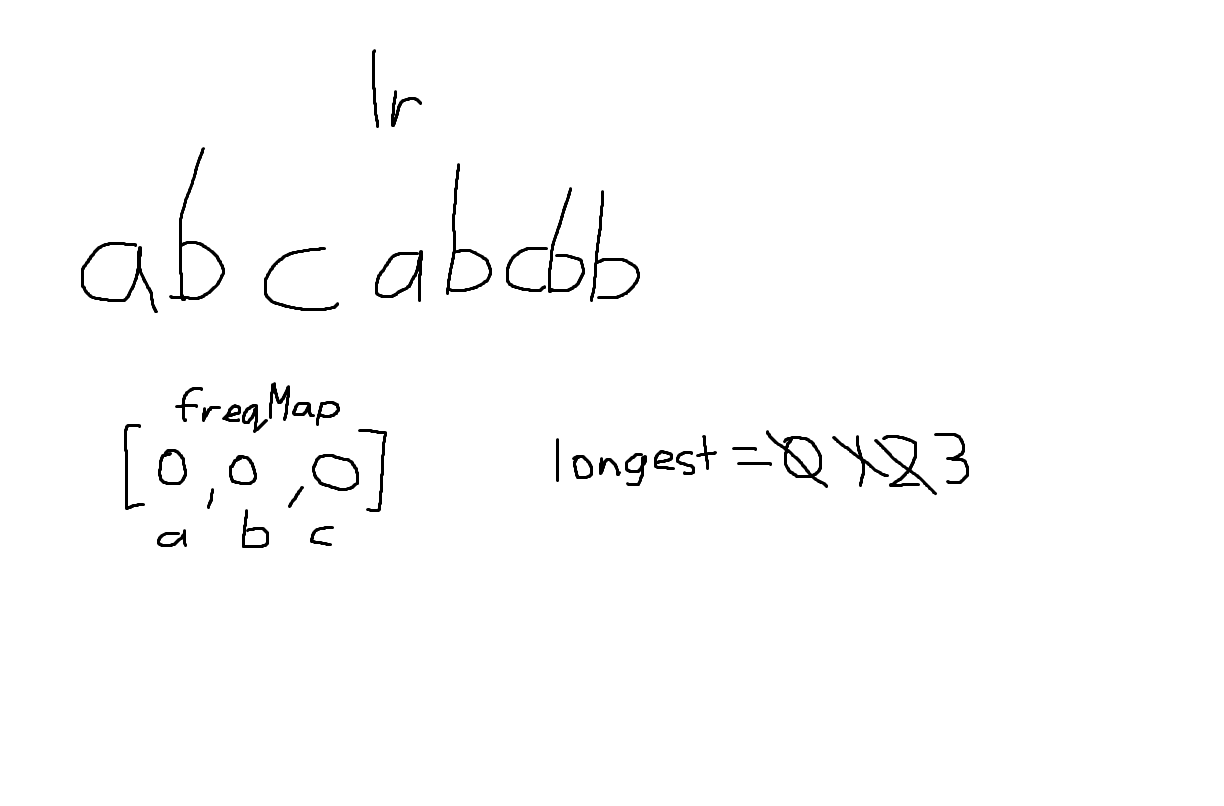 lr
abcabcbb
freqMap
[0,0,0] longest = 0 1 2 3
a b c